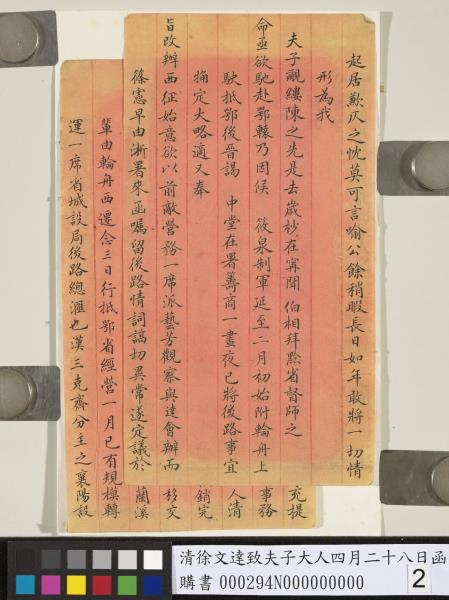 起居歉仄之忱莫可言喻公餘稍暇長日如年敢將一切情
形為我
夫子覼縷陳之先是去歲杪在甯聞 伯相拜黔省督師之
命亟欲馳赴鄂轅乃因候 筱泉制軍延至二月初始附輪舟上
駛抵鄂後晉謁 中堂在署籌商一晝夜已將後路事宜
㨂定大略適又奉
旨改辦西征始意欲以前敵營務一席派藝芳觀察與達會辦而
篠憲早由浙署來函囑留後路情詞諄切異常遂定議於
輩由輪舟西遷念三日行抵鄂省經營一月已有規模轉
運一席省城設局後路總滙也漢三克齋分主之襄陽設
充提
事務
人清
銷完
移交
蘭溪
清徐文達致夫子大人四月二十八日函
購書 000294N000000000
2